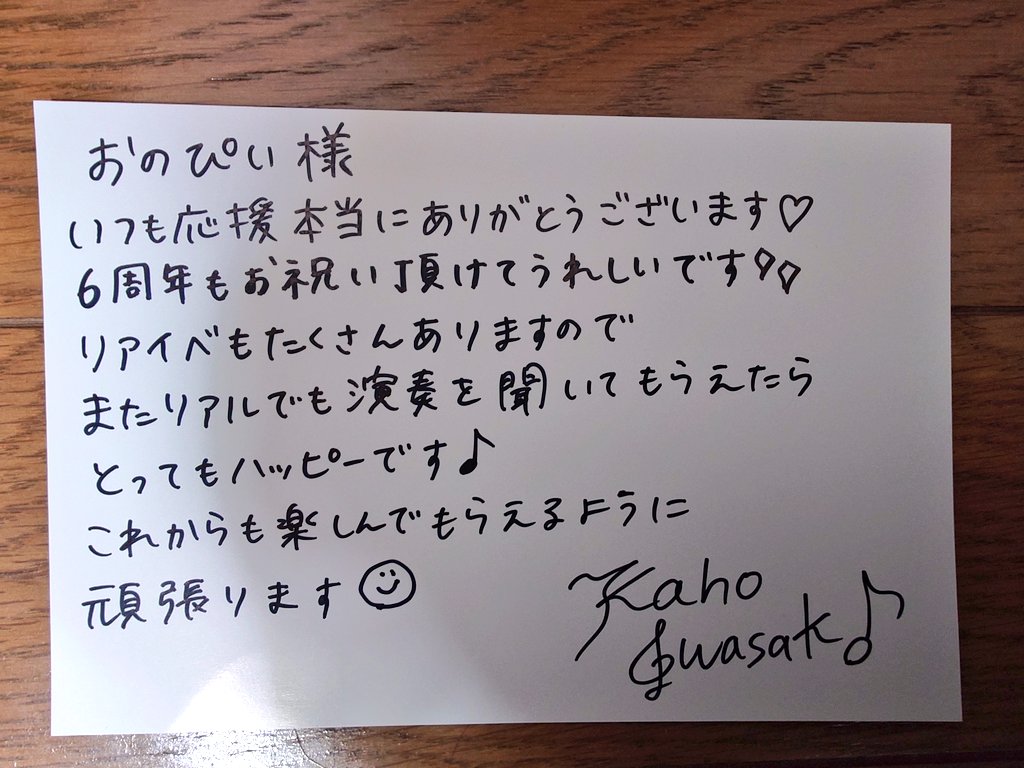 おのぴい様
いつも応援本当にありがとうございます♡
6周年もお祝い頂けてうれしいです
リアイベもたくさんありますので
またリアルでも演奏を聞いてもらえたら
とってもハッピーです♪
これからも楽しんでもらえるように
頑張ります☺
Kaho
Iwasaki♪